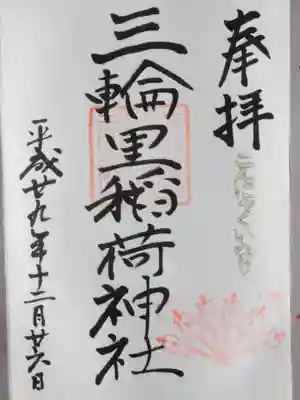 奉拝
こんにゃくいなり
三輪里稲荷神社
平成廿九年十二月廿六日